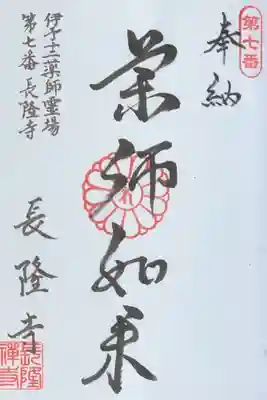 第七番
奉納
薬師如来
伊予十二薬師霊場
第七番 長隆寺
長隆寺